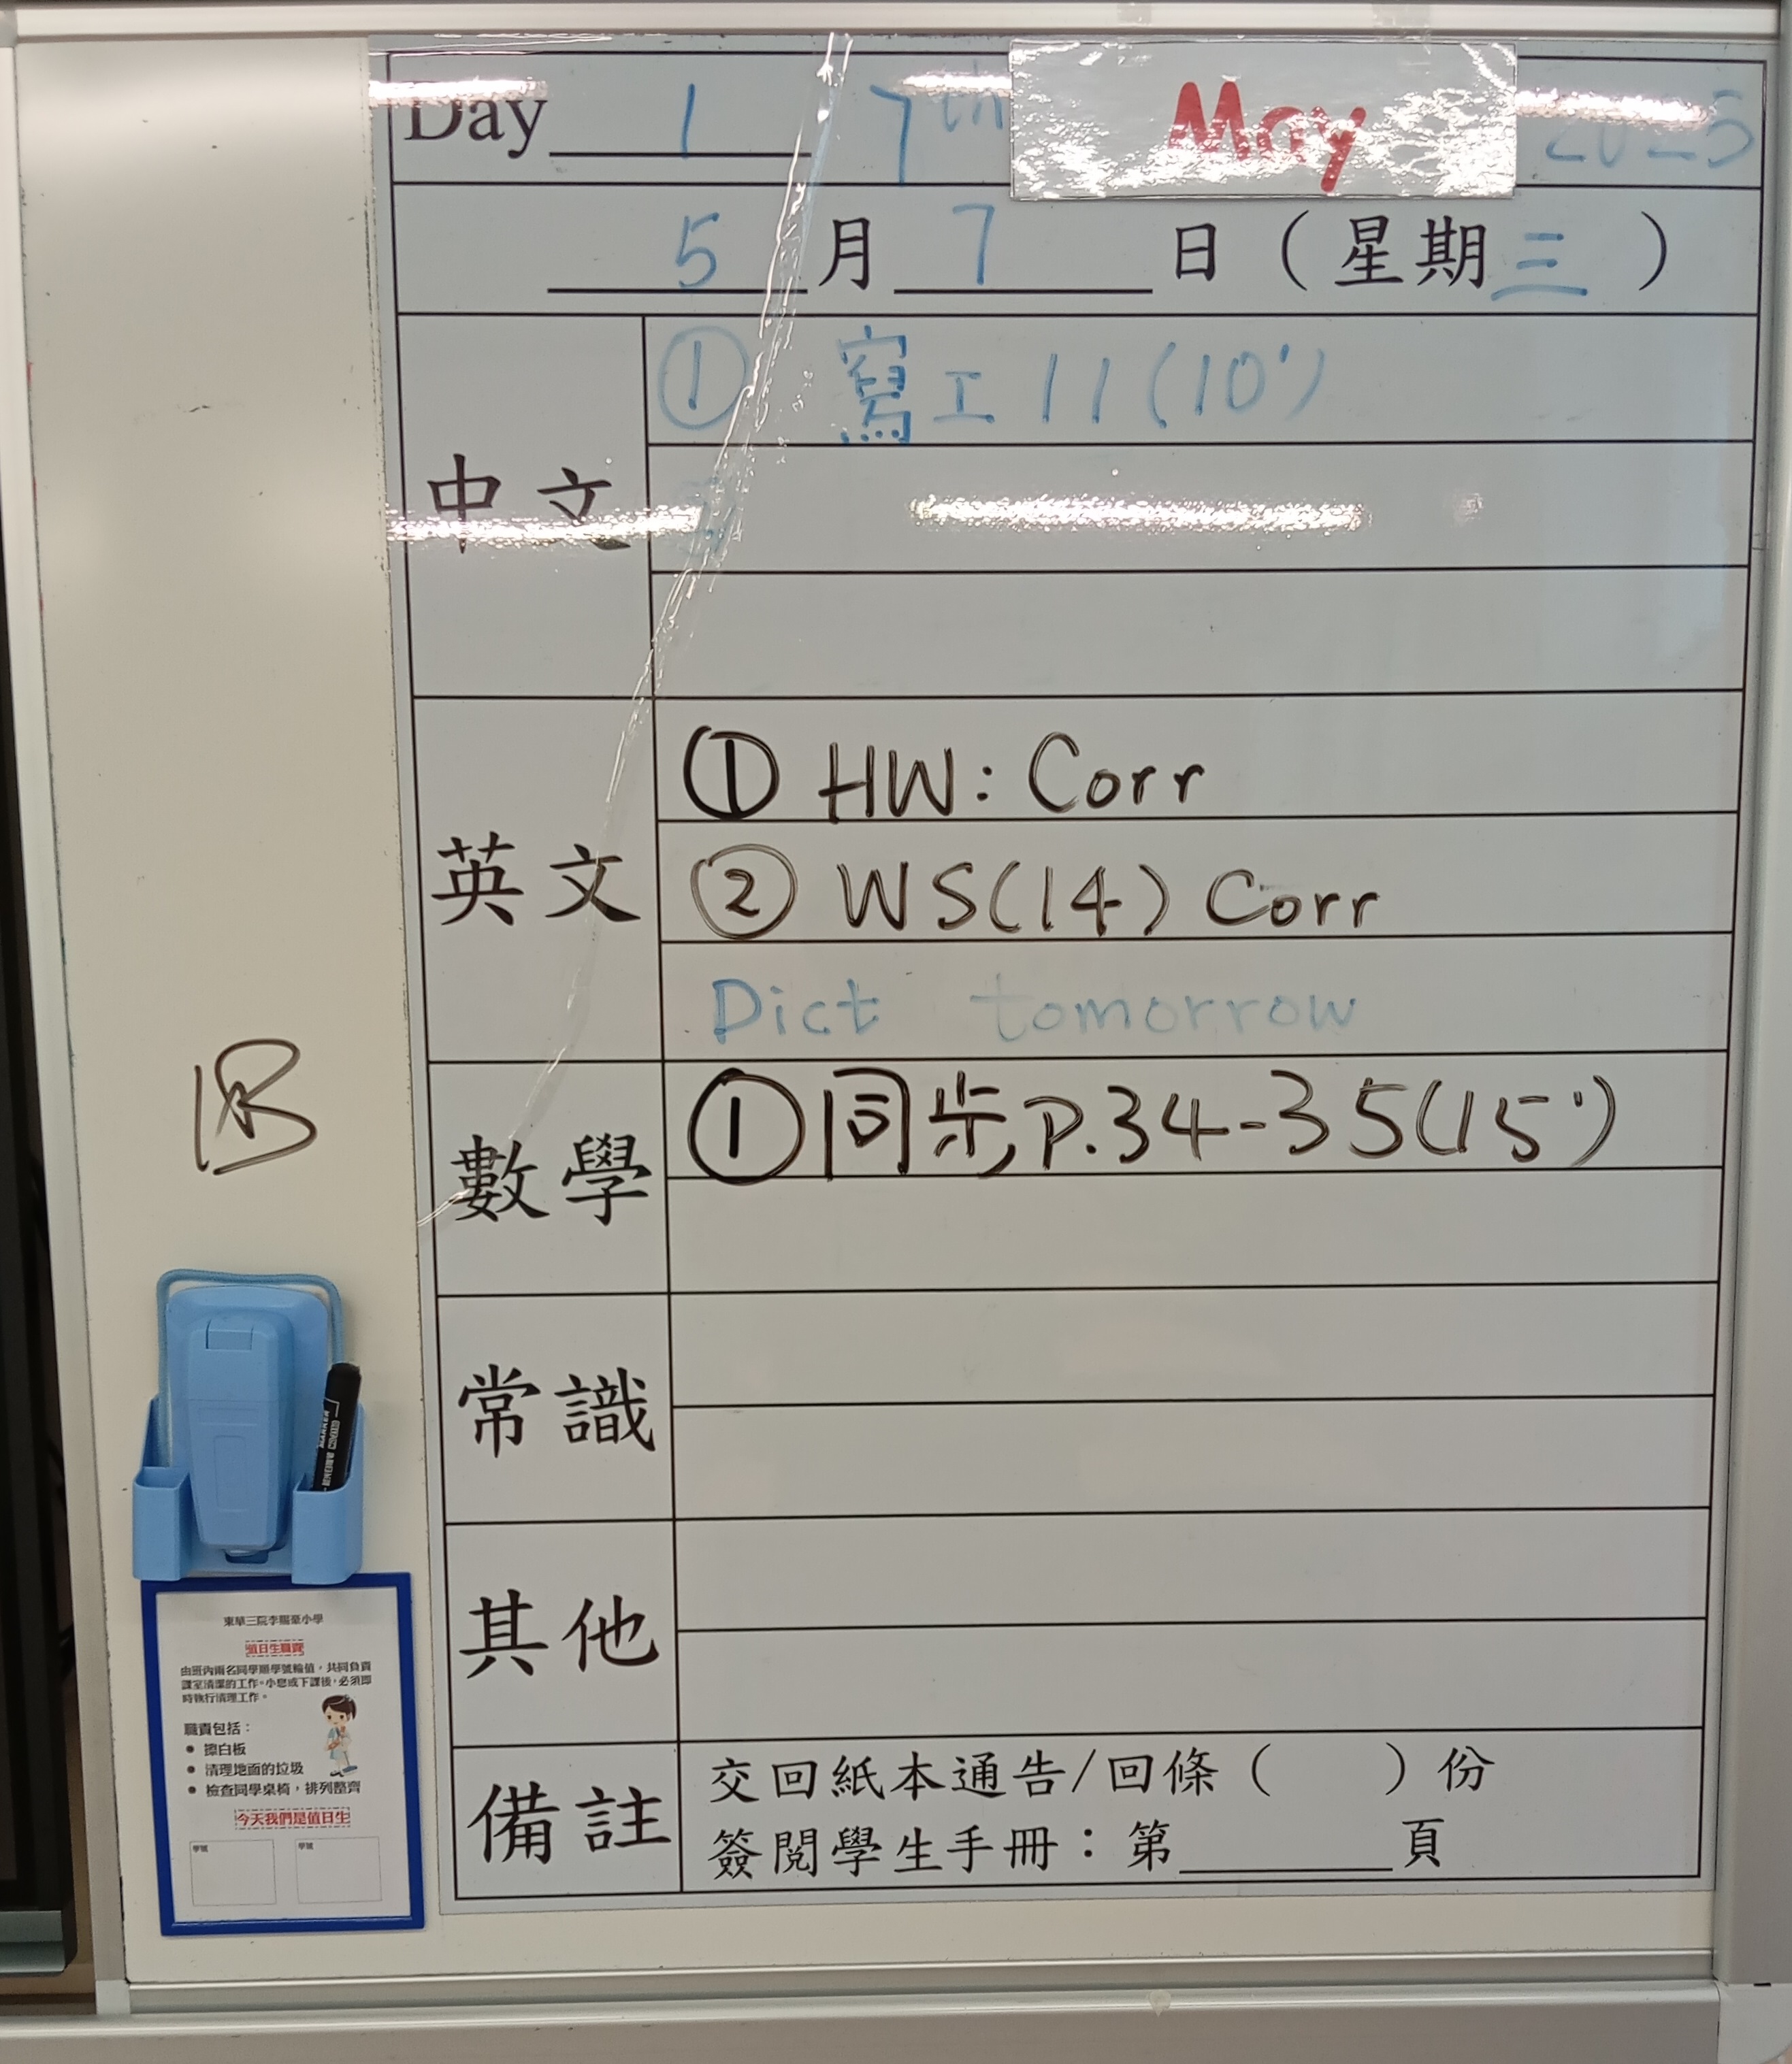 Day 1 7th May 2025
5月7日(星期三)
中文
① 寫工11(10')
英文
① HW: Corr
② WS(14) Corr
Dict tomorrow
數學
① 同步P.34-35(15')
常識
其他
備註
交回紙本通告/回條( )份
簽閱學生手冊:第______頁
1B
東華三院李賜豪小學
值日生職責
由班內兩名同學順學號輪值,共同負責
課室清潔的工作。小息或下課後,必須即
時執行清理工作。
職責包括:
● 擦白板
● 清理地面的垃圾
● 檢查同學桌椅,排列整齊
今天我們是值日生
學號 學號